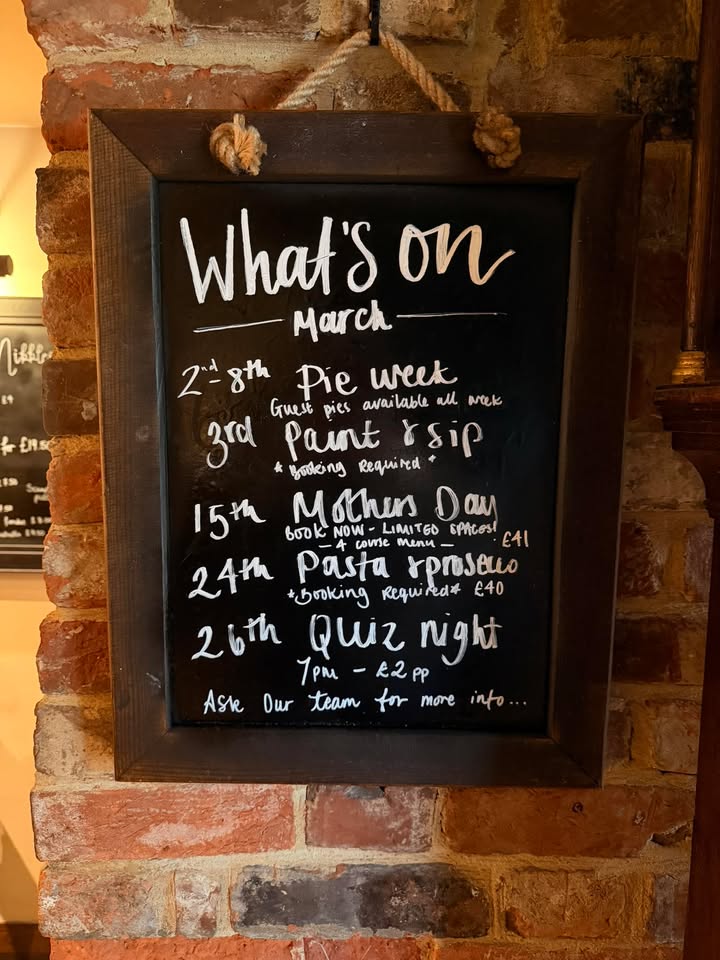 What's on
March
2nd-8th Pie week
Guest pies available all week
3rd Paint & sip
*Booking Required*
15th Mothers Day
BOOK NOW - LIMITED SPACES!
- 4 course menu - £41
24th Pasta & prosecco
*Booking Required* £40
26th Quiz night
7pm - £2 pp
Ask Our team for more info...